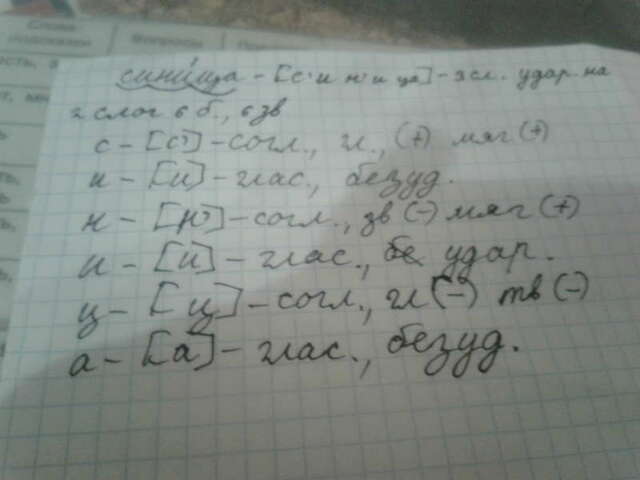 сини́ца - [с' и н' и ца] - 3 сл. удар. на
2 слог 6 б., 6 зв
с - [с'] - согл., гл., (+) мяг (+)
и - [и] - глас., безуд.
н - [н'] - согл., зв (-) мяг (+)
и - [и] - глас., удар.
ц - [ц] - согл., гл (-) тв (-)
а - [а] - глас., безуд.